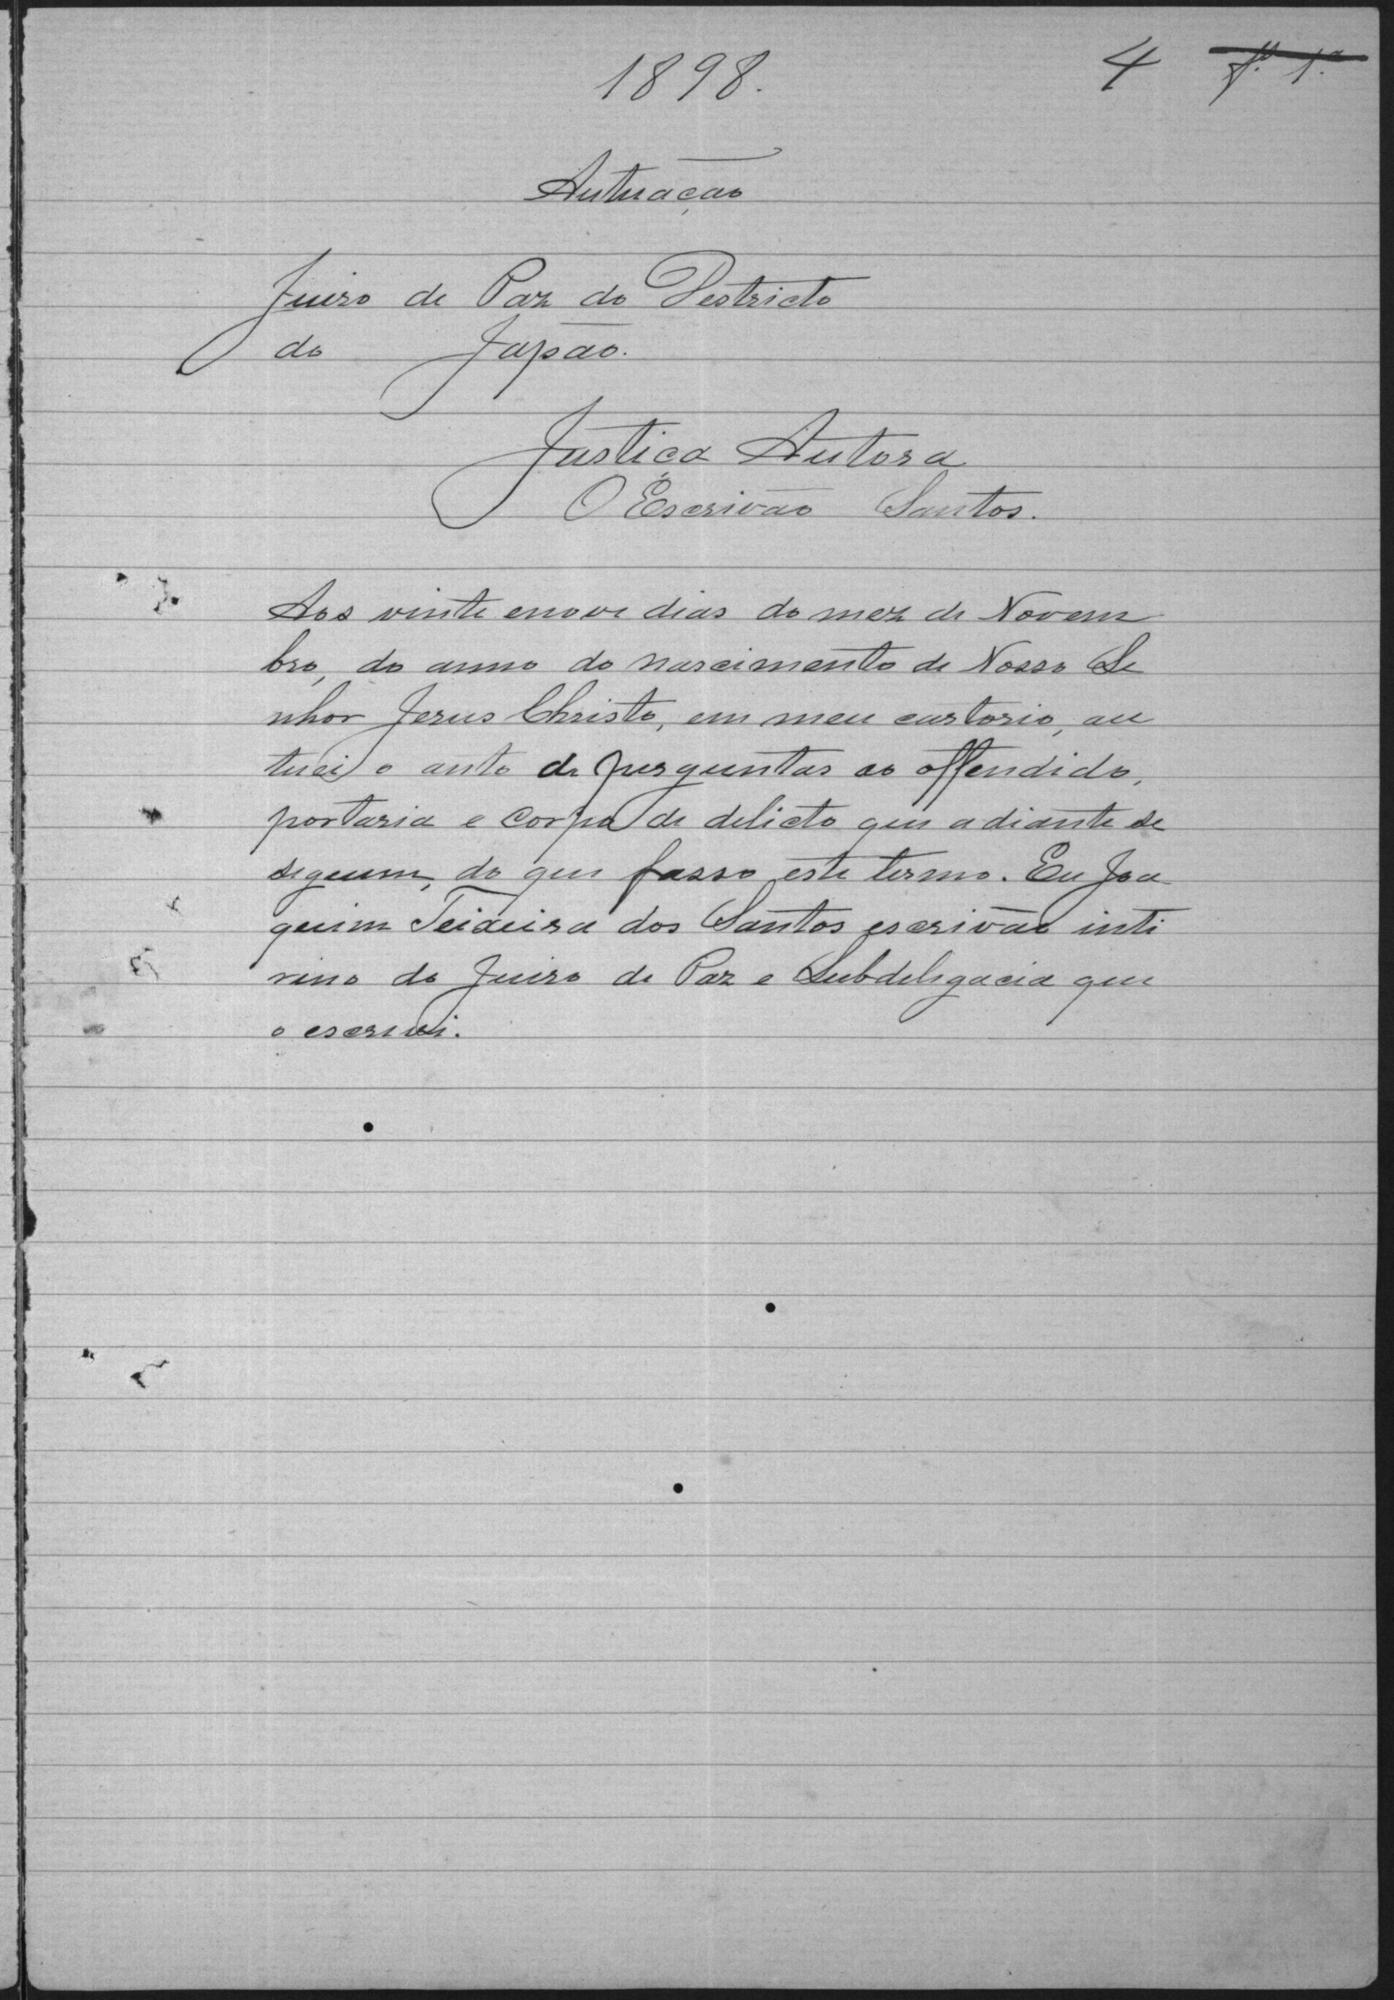 1898.
4 fl. 1.ª
Autuação
Juizo de Paz do Destricto
do Japão.
Justiça Autora
O Escrivão Santos.
Aos vinte enove dias do mez de Novem
bro, do anno do nascimento de Nosso Se
nhor Jesus Christo, em meu cartorio, au
tuei o auto de perguntas ao offendido,
portaria e corpo de delicto que adiante se
seguem, do que fasso este termo. Eu Joa
quim Teixeira dos Santos escrivão inte
rino do Juizo de Paz e Subdelegacia que
o escrevi.